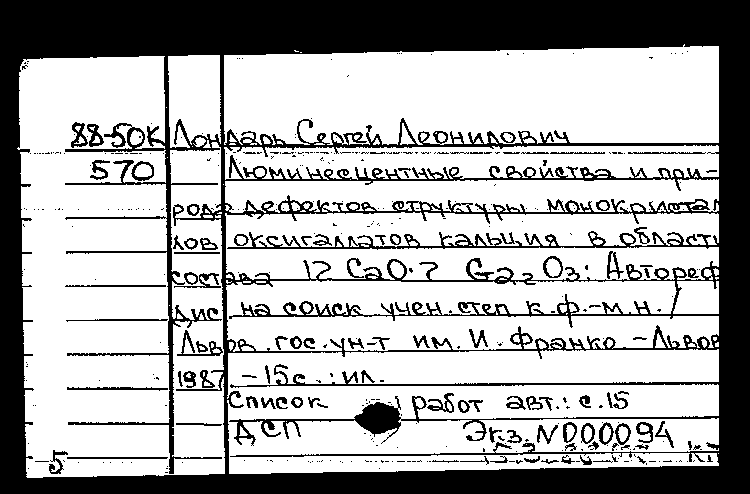 88-50К Лондарь Сергей Леонидович
570 Люминесцентные свойства и при-
рода дефектов структуры монокристал
лов оксигаллатов кальция в области
состава 12 CaO·7 Ga2O3: Автореф
дис. на соиск учен. степ к.ф.-м.н. /
Львов. гос. ун-т им. И. Франко. - Львов
1987. - 15с.: ил.
Список работ авт.: с.15
ДСП Экз. N000094
5